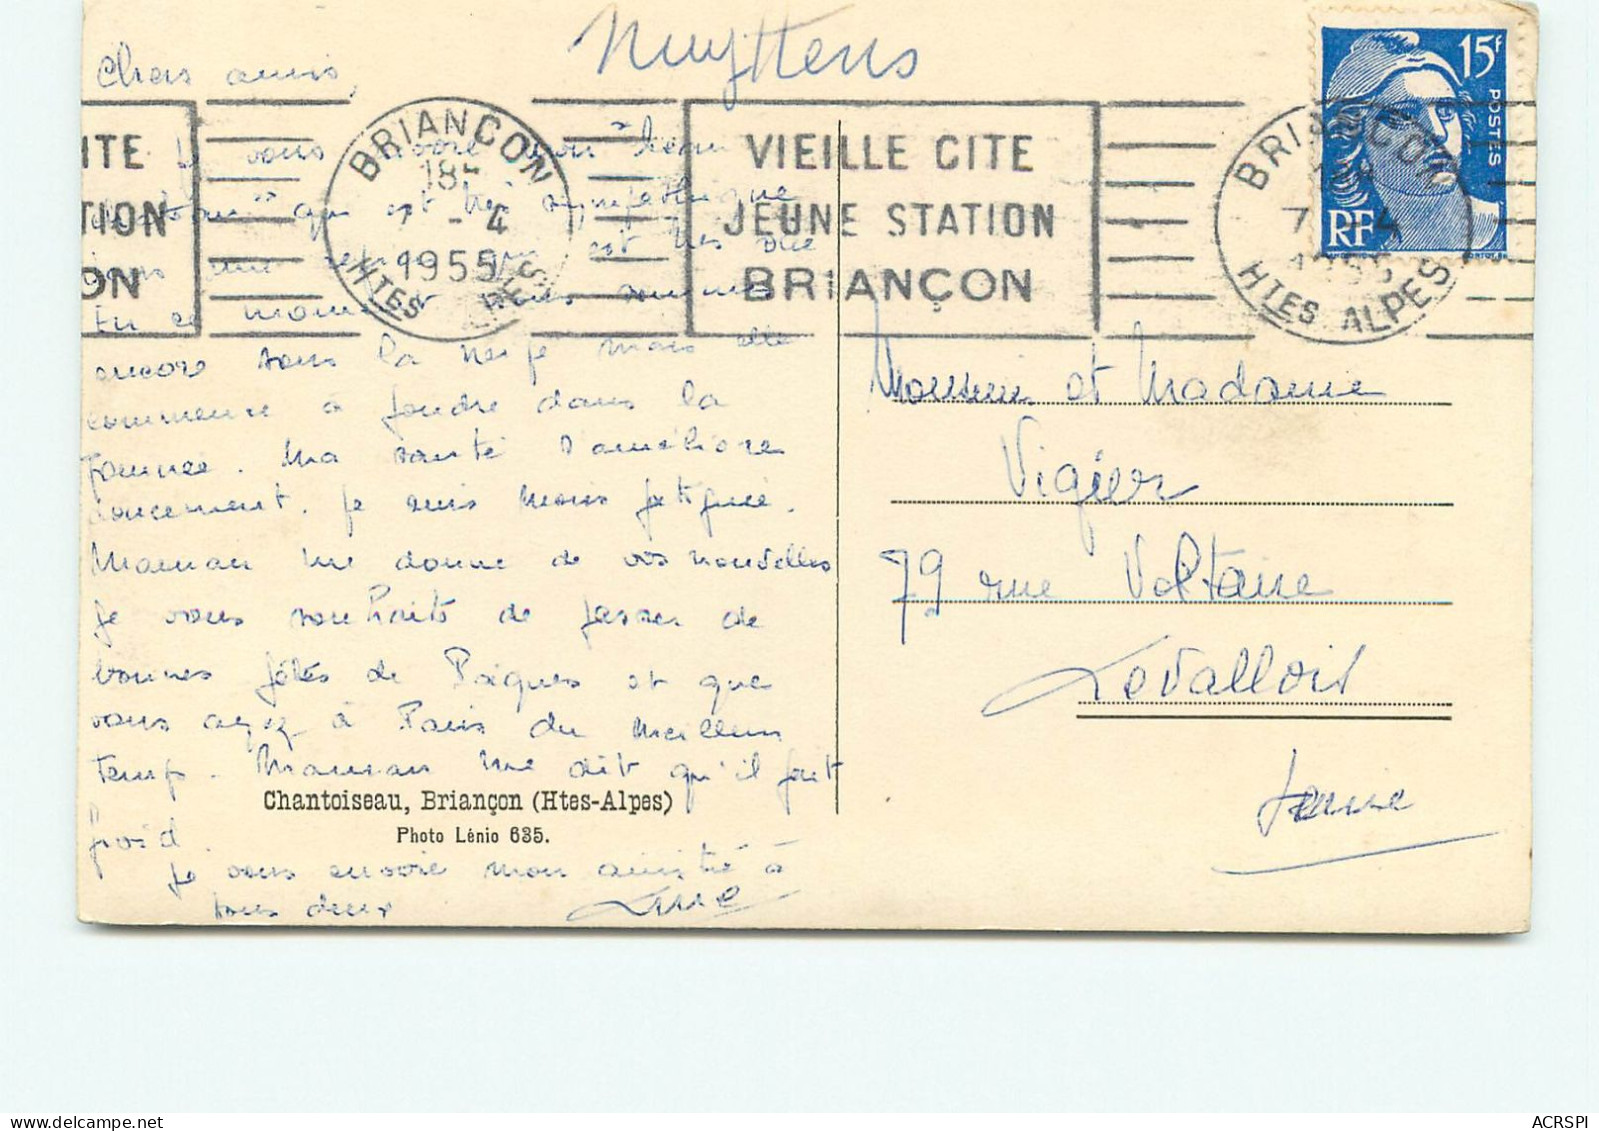 Nuyttens
Chers amis,
15F
POSTES
RF
BRIANÇON
18
7 - 4
1955
HTES ALPES
VIEILLE CITE
JEUNE STATION
BRIANÇON
BRIANÇON
7 - 4
1955
HTES ALPES
ITE
TION
ON
Je vous envoie mon "beau
" qui est très sympathique
est très
En ce moment nous sommes
encore sous la neige mais elle
commence à fondre dans la
journée. Ma santé s'améliore
doucement. Je suis moins fatiguée.
Maman me donne de vos nouvelles
Je vous souhaite de passer de
bonnes fêtes de Pâques et que
vous ayez à Paris du meilleur
temps. Maman me dit qu'il fait
froid.
Je vous envoie mon amitié à
tous deux
Chantoiseau, Briançon (Htes-Alpes)
Photo Lénio 635.
Monsieur et Madame
Vigier
79 rue Voltaire
Levallois
Seine
ACRSPI